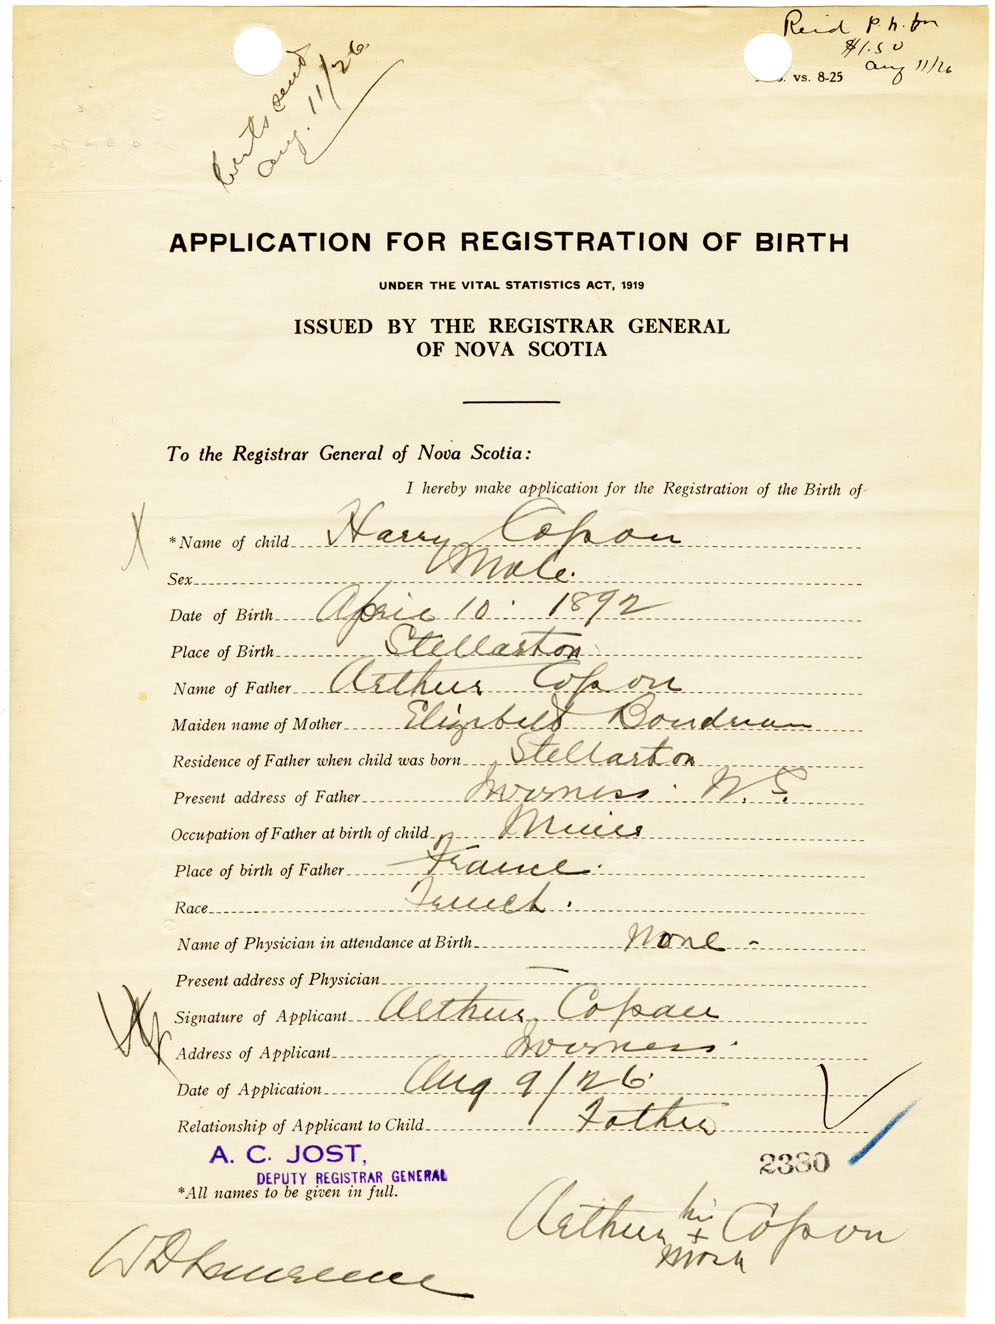 Reid P. n. for
$1.50
Aug 11/26
vs. 8-25
sent
Aug. 11/26
APPLICATION FOR REGISTRATION OF BIRTH
UNDER THE VITAL STATISTICS ACT, 1919
ISSUED BY THE REGISTRAR GENERAL
OF NOVA SCOTIA
To the Registrar General of Nova Scotia:
I hereby make application for the Registration of the Birth of
X
*Name of child Harry Copon
Sex Male.
Date of Birth April 10. 1892
Place of Birth Stellarton
Name of Father Arthur Copon
Maiden name of Mother Elizabeth Boudreau
Residence of Father when child was born Stellarton
Present address of Father Inverness. N. S.
Occupation of Father at birth of child Miner
Place of birth of Father France.
Race French.
Name of Physician in attendance at Birth None -
Present address of Physician —
Signature of Applicant Arthur Copon
Address of Applicant Inverness.
Date of Application Aug 9/26.
Relationship of Applicant to Child Father
A. C. JOST,
DEPUTY REGISTRAR GENERAL
2380
*All names to be given in full.
Arthur his + mark Copon
W D Lawrence